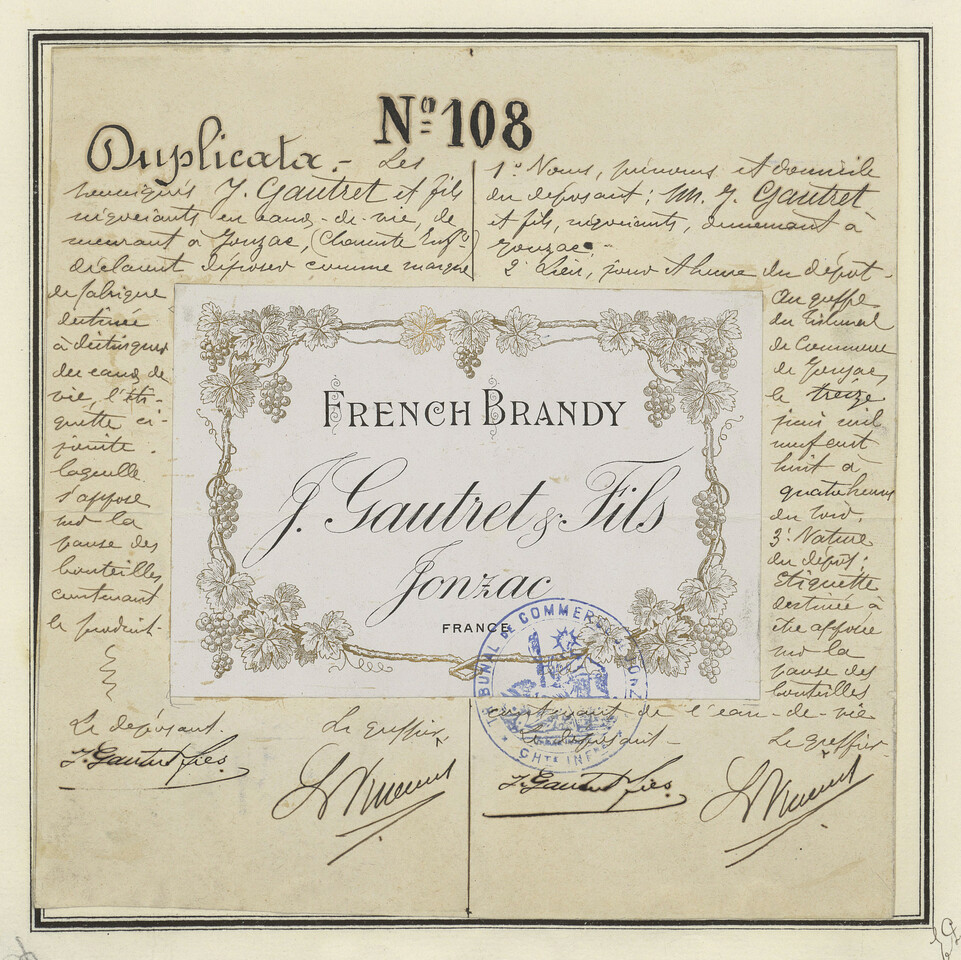 Nº 108
Duplicata.- Les
soussignés J. Gautret et fils
négociants en eaux-de-vie, de
meurant à Jonzac, (Charente Infre)
déclarent déposer comme marque
de fabrique
destinée
à distinguer
des eaux de
vie, l'éti-
quette ci-
jointe.
laquelle
s'appose
sur la
panse des
bouteilles
contenant
le produit-
Le déposant.
Le greffier
J. Gautret & fils.
1º Noms, prénoms et domicile
du déposant; MM. J. Gautret
et fils, négociants, demeurant à
Jonzac.-
2º Lieu, jour et heure du dépôt-
Au greffe
du Tribunal
de Commerce
de Jonzac,
le treize
juin mil
neuf cent
huit à
quatre heures
du soir.
3º Nature
du dépôt;
Etiquette
destinée à
être apposée
sur la
panse des
bouteilles
contenant de l'eau-de-vie
Le déposant-
Le greffier
J. Gautret & fils.
FRENCH BRANDY
J. Gautret & Fils
Jonzac
FRANCE
TRIBUNAL DE COMMERCE DE JONZAC
* CHTE INFRE *